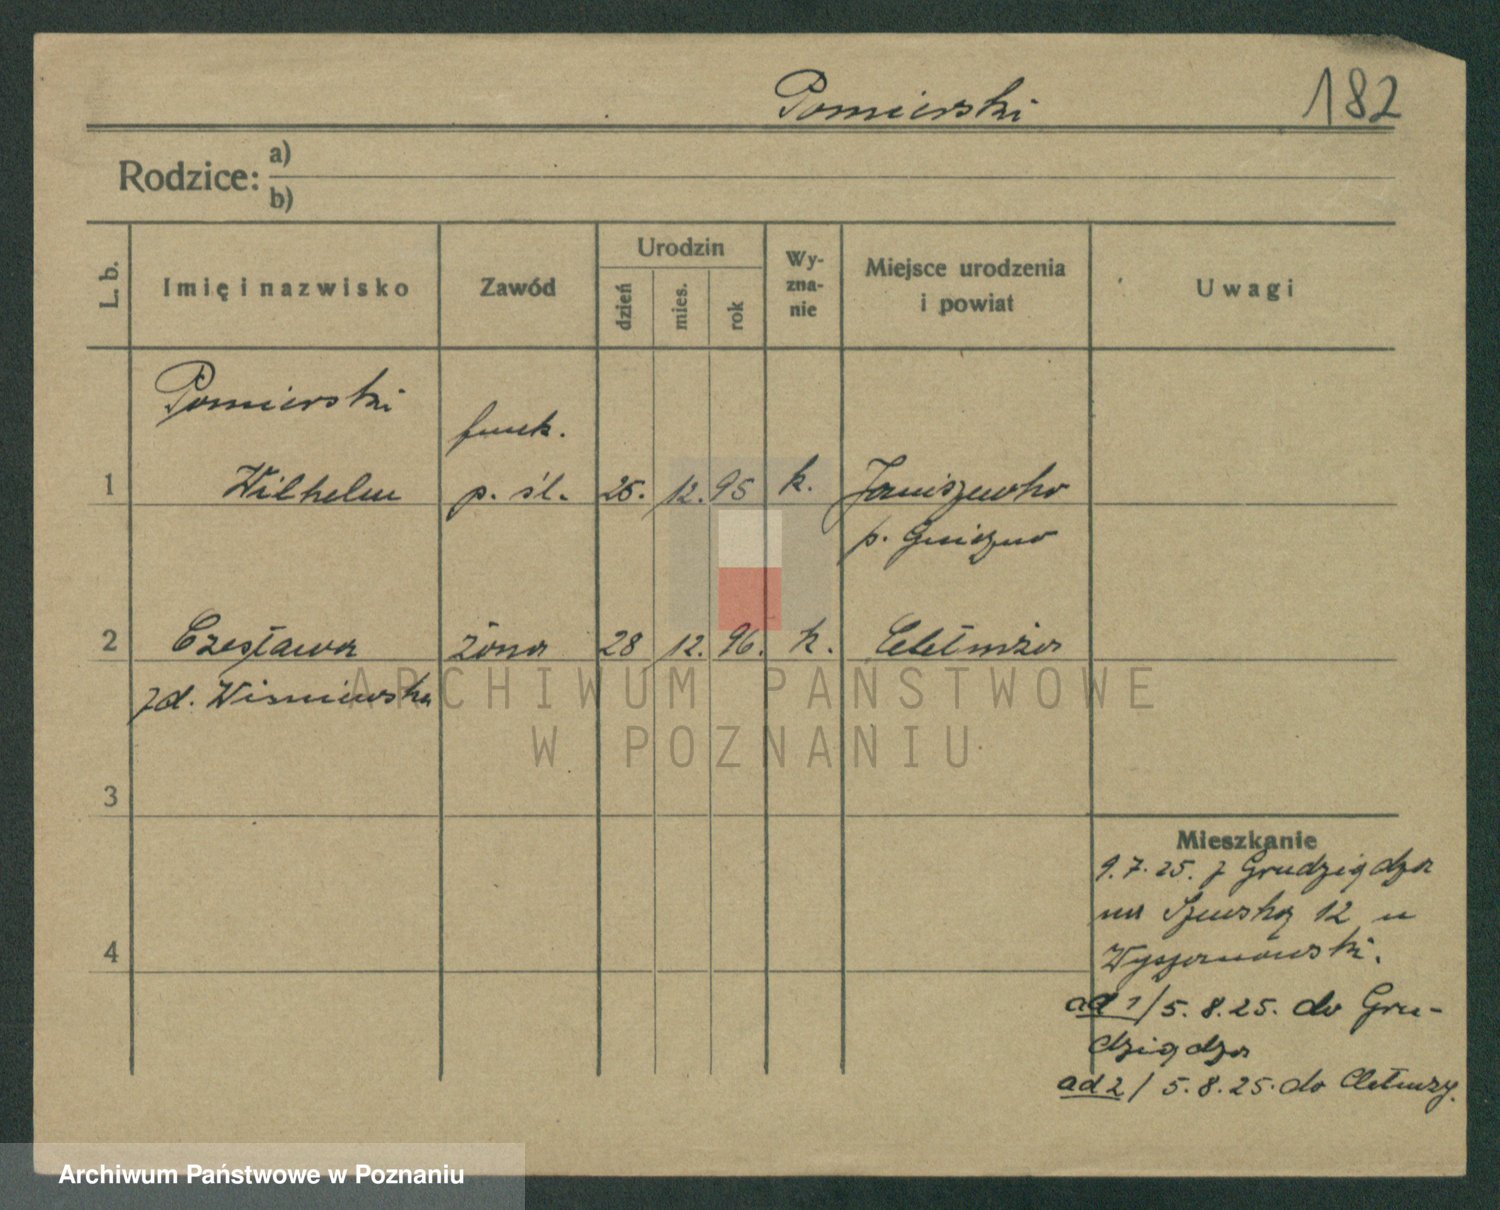 Pomierski
182
Rodzice: a)
b)
L. b.
Imię i nazwisko
Zawód
Urodzin
dzień
mies.
rok
Wy-
zna-
nie
Miejsce urodzenia
i powiat
Uwagi
Pomierski
funk.
1 Wilhelm p. śl. 25. 12. 95 k. Janiszewko
p. Gniezno
2 Czesława żona 28 12. 96. k. Chełmża
zd. Wiśniewska
ARCHIWUM PAŃSTWOWE
W POZNANIU
3
Mieszkanie
9.7.25. z Grudziądza
na Szewską 12 u
4
ad 1/ 5.8.25. do Gru-
dziądza
ad 2/ 5.8.25. do Chełmży.
Archiwum Państwowe w Poznaniu